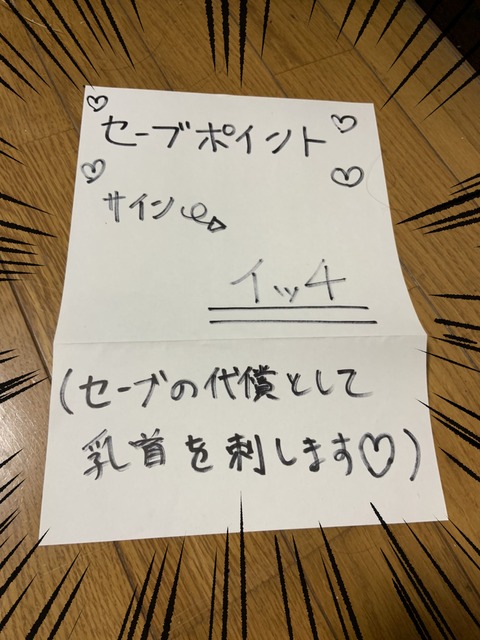 セーブポイント
サイン
イッチ
(セーブの代償として
乳首を刺します♡)